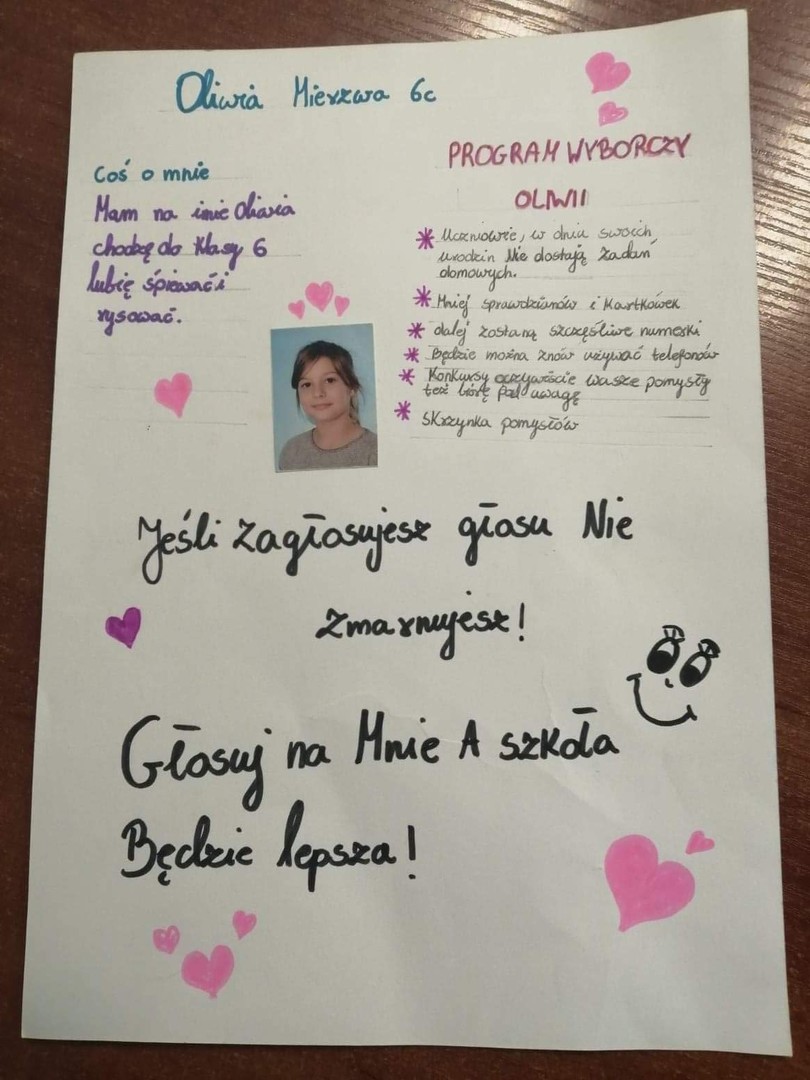 Oliwia Mierzwa 6c
Coś o mnie
Mam na imie Oliwia
chodzę do klasy 6
lubię śpiewać i
rysować.
PROGRAM WYBORCZY
OLIWII
* Uczniowie, w dniu swoich
urodzin Nie dostają Zadań
domowych.
* Mniej sprawdzianów i Kartkówek
* dalej zostaną szczęśliwe numerki
* Będzie można znów używać telefonów
* Konkursy oczywiście wasze pomysły
też biorę pod uwagę
* Skrzynka pomysłów
Jeśli Zagłosujesz głosu Nie
Zmarnujesz!
Głosuj na Mnie A szkoła
Będzie lepsza!